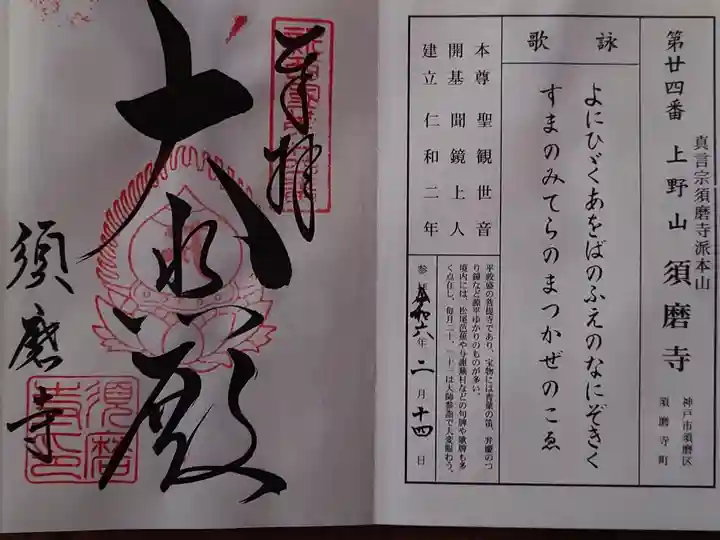 真言宗須磨寺派本山
第廿四番 上野山 須磨寺
神戸市須磨区
須磨寺町
詠歌
よにひゞくあをばのふえのなにぞきく
すまのみてらのまつかぜのこゑ
本尊 聖観世音
開基 聞鏡上人
建立 仁和二年
平敦盛の菩提寺であり、宝物には青葉の笛、弁慶のつ
り鐘など源平ゆかりのものが多い。
境内には、松尾芭蕉や与謝蕪村などの句碑や歌碑も多
く点在し、毎月二十、二十一日は大師参詣で大変賑わう。
参拝 令和六年 二月 十四日
奉拝
大悲殿
須磨寺
須磨
寺印